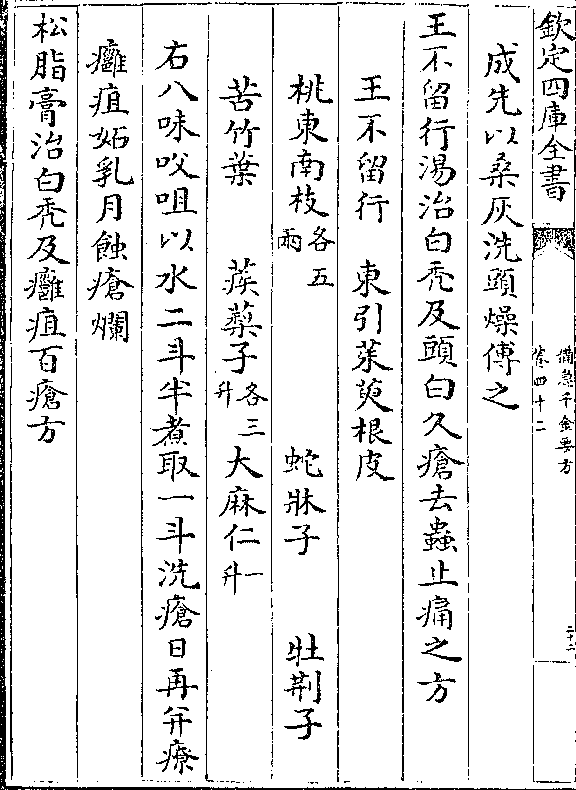 欽定四庫全書
備急千金要方
卷四十二
成先以桑灰洗頭燥傅之
王不留行湯治白秃及頭白久瘡去蟲止痛之方
王不留行 東引茱萸根皮
桃東南枝各五兩 蛇牀子 牡荆子
苦竹葉 蒺藜子各三升 大麻仁一升
右八味㕮咀以水二斗半煮取一斗洗瘡日再并療
癰疽妬乳月蝕瘡爛
松脂膏治白秃及癰疽百瘡方